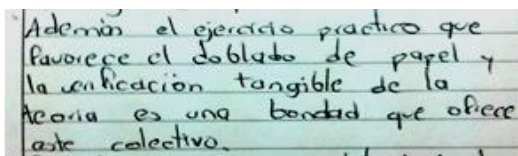 Además el ejercicio practico que
favorece el doblado de papel y
la verificación tangible de la
teoria es una bondad que ofrece
este colectivo.